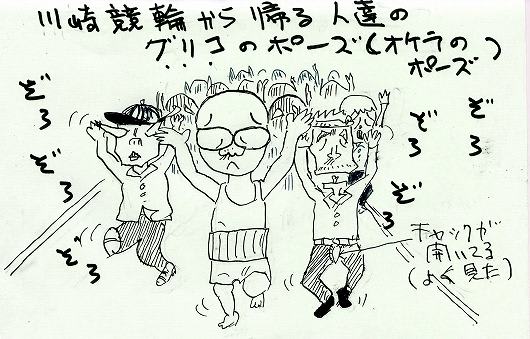 川崎競輪から帰る人達の
グリコのポーズ(オケラの
ポーズ)
ぞろ
ぞろ
ぞろ
ぞろ
ぞろ
ぞろ
チャックが
開いてる
(よく見た)